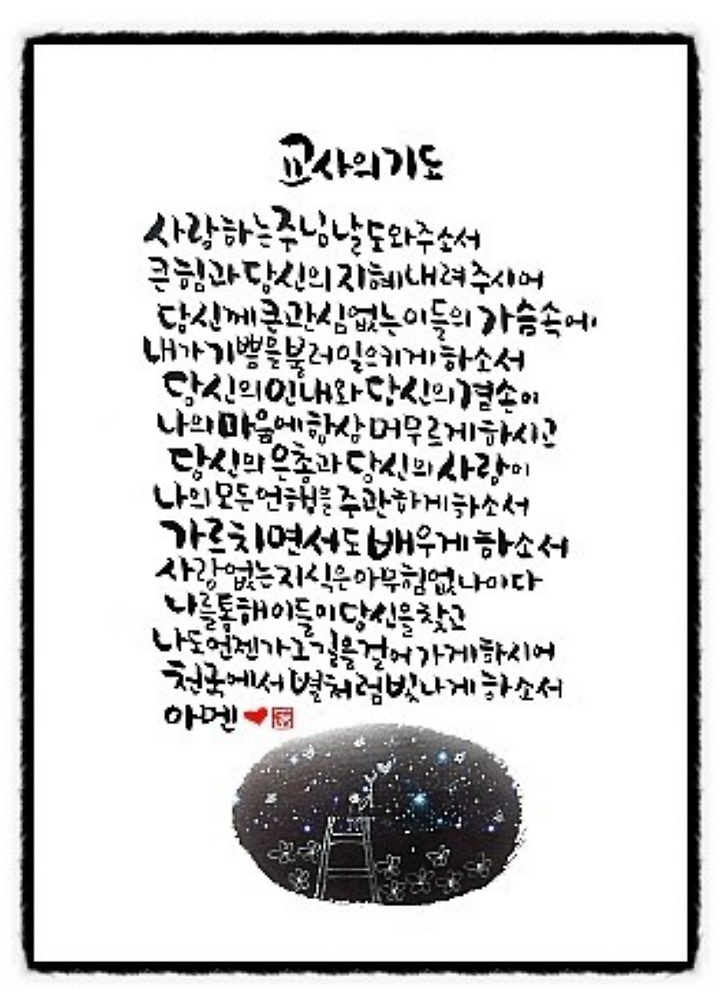 교사의기도
사랑하는주님날도와주소서
큰힘과당신의지혜내려주시어
당신께큰관심없는이들의가슴속에
내가기쁨을불러일으키게하소서
당신의인내와당신의겸손이
나의마음에항상머무르게하시고
당신의은총과당신의사랑이
나의모든언행을주관하게하소서
가르치면서도배우게하소서
사랑없는지식은아무힘없나이다
나를통해이들이당신을찾고
나도언젠가그길을걸어가게하시어
천국에서별처럼빛나게하소서
아멘